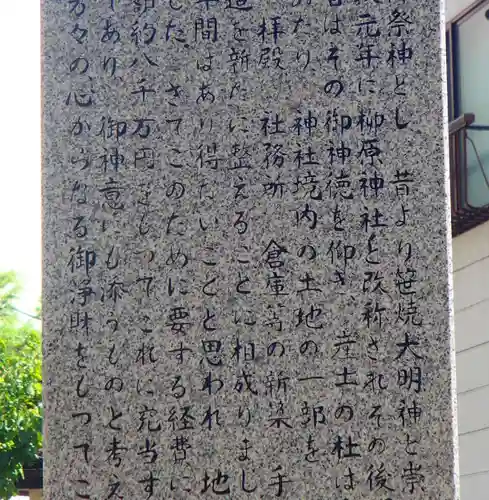 祭神とし 昔より笹焼大明神と崇
元年に柳原神社と改称されその後
はその御神徳を仰ぎ、産土の社は
たり、神社境内の土地の一部を
拝殿 社務所 倉庫等の新築 手
を新たに整えることに相成りまし
年間はあり得ないことと思われ 地
した、さてこのために要する経費に
約八千万円をもってこれに充当す
であり、御神意にも添うものと考え
々の心からなる御浄財をもってこ